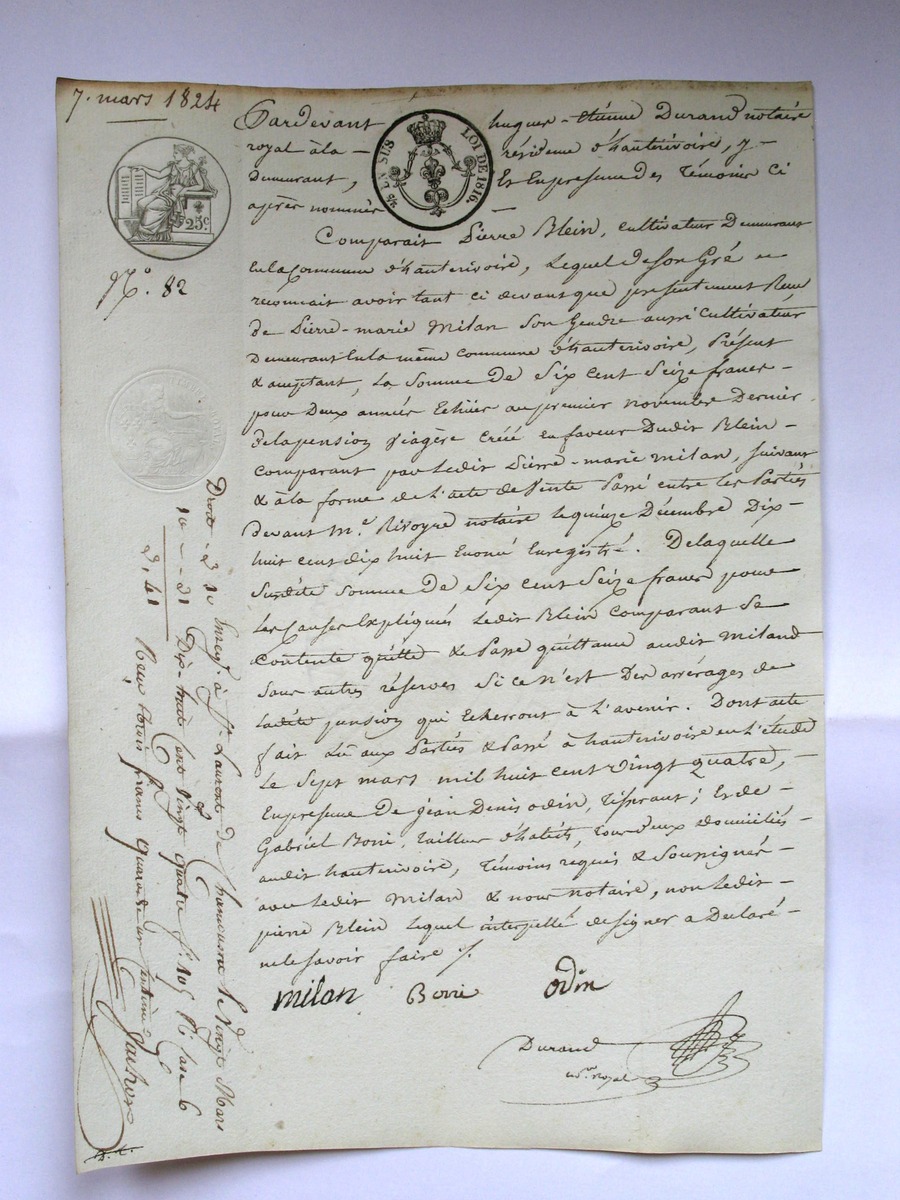 7. mars 1824
Pardevant hugues-étiénne Durand notaire
royal à la résidence d'hauterivoire, y
Demeurant, Et En presence des Témoins Ci
après nommés
LOI DE 1816
25c
N.° 82
Comparait Pierre Blein, cultivateur Demeurant
En la Commune d'hauterivoire, Lequel de son Gré a
reconnait avoir tant ci devant que presentement Reçu
de Pierre-marie Milan Son Gendre aussi Cultivateur
Demeurant En la même Commune d'hauterivoire, Présent
& acceptant, La Somme De Six Cent Seize francs
pour Deux années Echues au premier novembre Dernier
de la pension viagère créée en faveur Dudit Blein
Comparant par Ledit Pierre-marie Milan, suivant
& à la forme de L'acte de Vente Passé entre les Parties
Devant M.e Rivoyre notaire le quinze Décembre Dix-
huit cent dix huit Enregistré. De laquelle
Susdite Somme De Six Cent Seize francs pour
les Causes Expliquées Ledit Blein Comparant Se
Contente quitte & Passe quittance audit Miland
Sans autres réserves Si ce n'est Des arrérages de
Ladite pension qui Echerront à L'avenir. Dont acte
fait Lû aux Parties & Passé à hauterivoire en L'étude
Le Sept mars mil huit cent vingt quatre,
En presence De jean Denis Odin, Tisserant; Et de
Gabriel Borie, Tailleur d'habits, Tous deux domiciliés
audit hauterivoire, Témoins requis & Soussignés
avec Ledit Milan & nous notaire, non Ledit
pierre Blein Lequel interpellé de signer a Déclaré
ne le Savoir faire /.
milan Borie odin
Durand
no.re Royal
Droit 2 20 Enregt. à St. Laurent de Chamousset le Vingt Mars
10 - 21 Dix-huit Cent Vingt quatre f.° 105 R.° Case 6
2,41 Reçu Deux francs quarante un Centimes